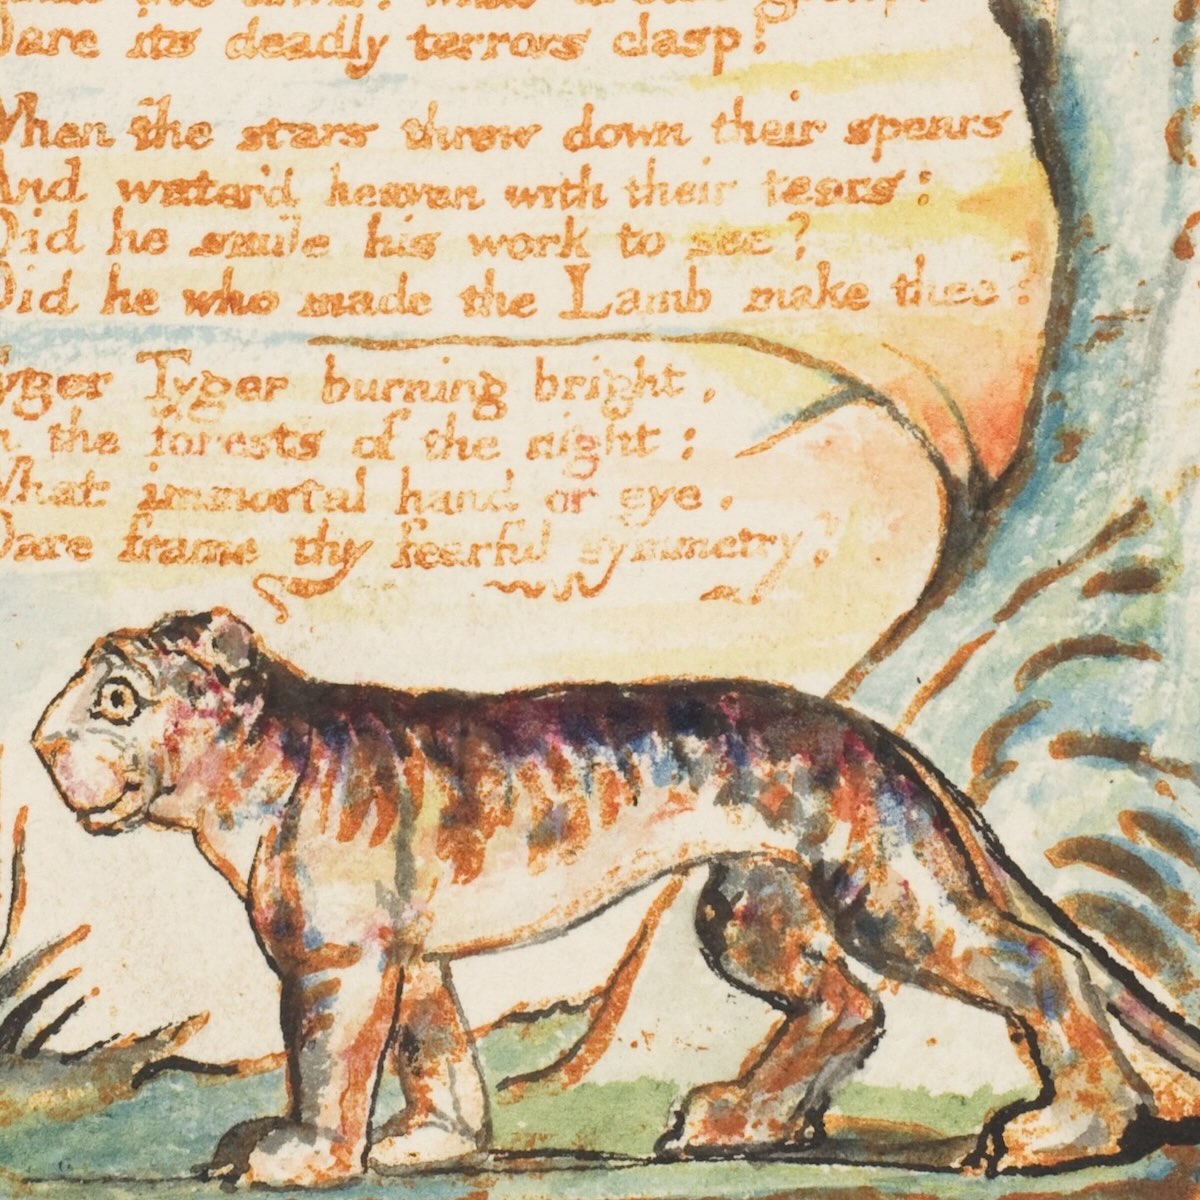 Dare its deadly terrors clasp!
When the stars threw down their spears
And water'd heaven with their tears:
Did he smile his work to see?
Did he who made the Lamb make thee?
yger Tyger burning bright,
n the forests of the night:
What immortal hand or eye,
Dare frame thy fearful symmetry?